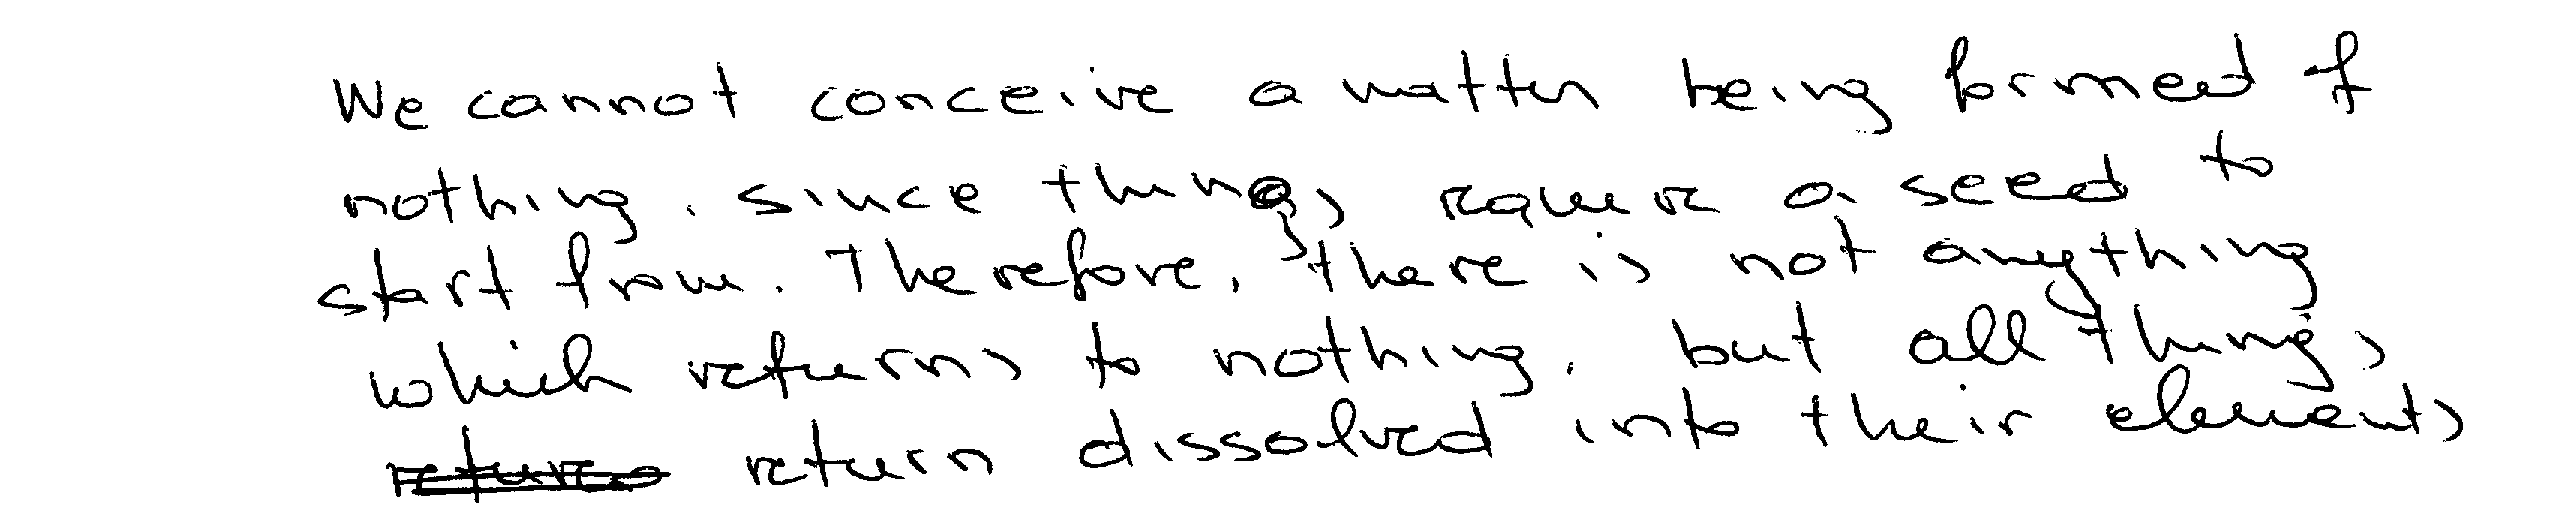 We cannot conceive a matter being formed of
nothing, since things require a seed to
start from. Therefore, there is not anything
which returns to nothing, but all things
return dissolved into their elements